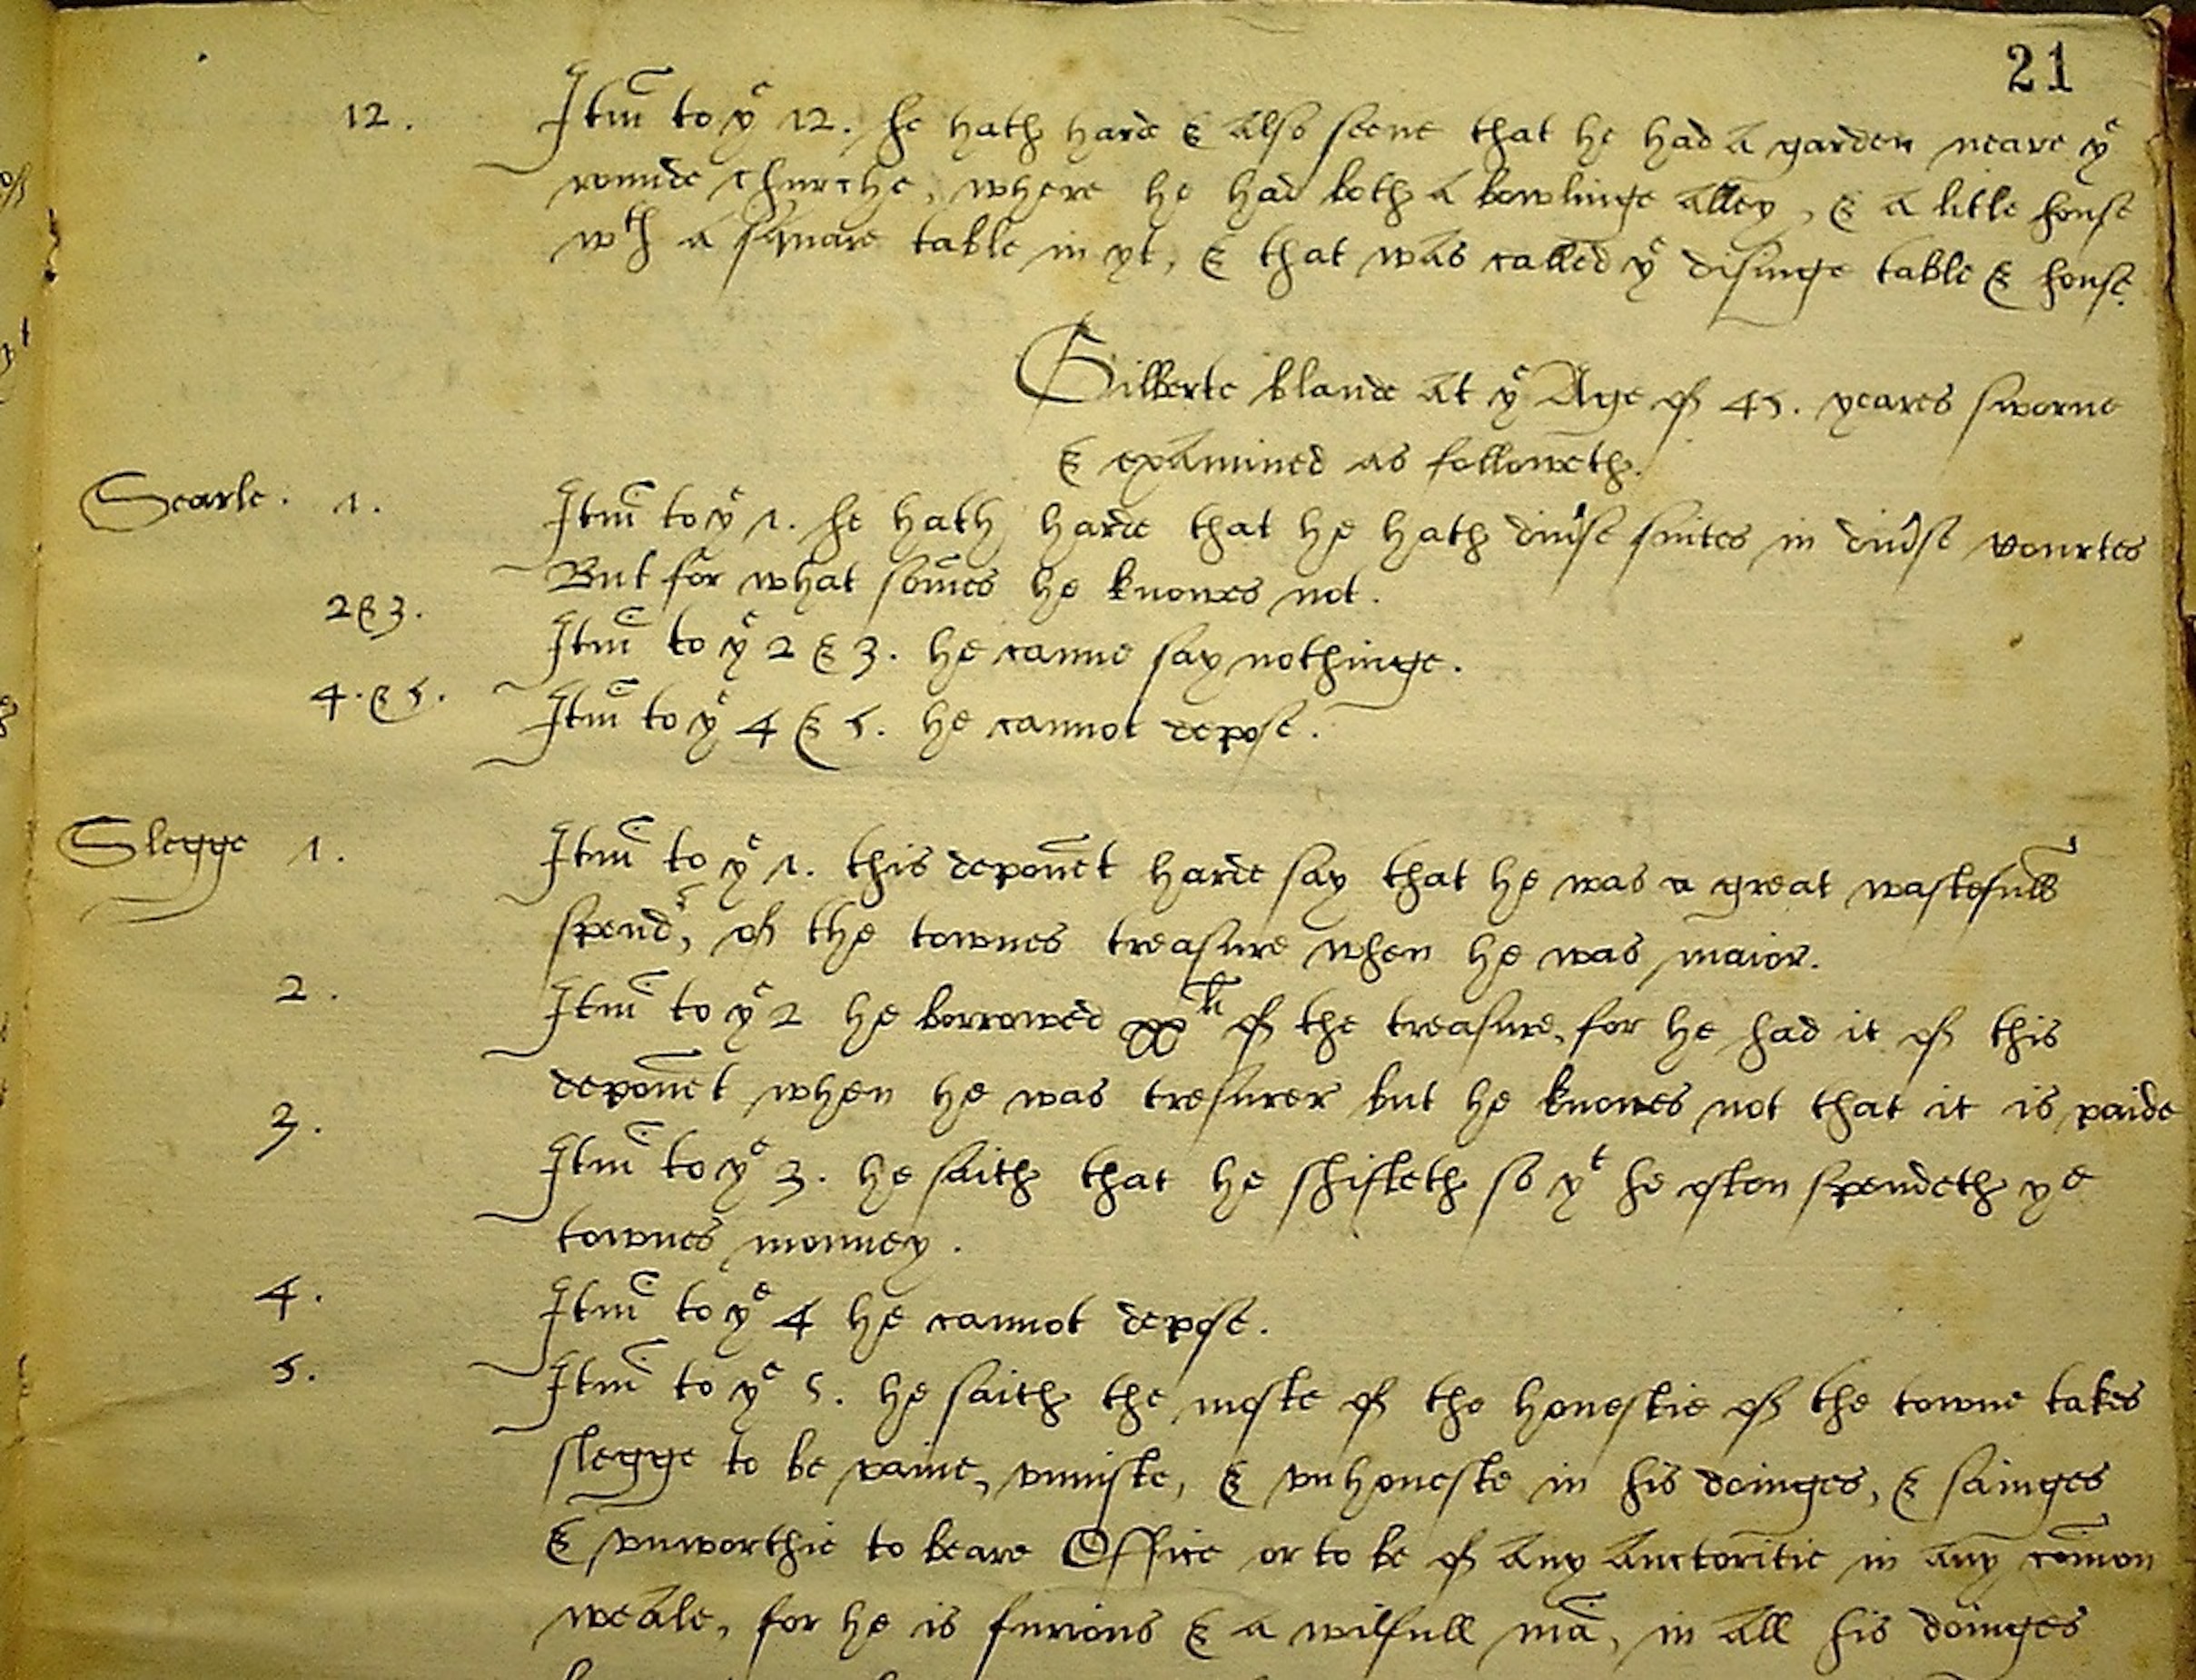 21
12. Itm̃ to yͤ 12. he hath harde & also seene that he had a garden neare yͤ
rounde churche, where he had both a bowlinge alley, & a litle house
wᵗʰ a square table in yt, & that was called yͤ disinge table & house.
Gilberte blande at yͤ Age of 45. yeares sworne
& examined as followeth.
Searle. 1. Itm̃ to yͤ 1. he hath harde that he hath diuse suites in diuse courtes
But for what som̃es he knowes not.
2&3. Itm̃ to yͤ 2 & 3. he canne say nothinge.
4.&5. Itm̃ to yͤ 4 & 5. he cannot depose.
Slegge 1. Itm̃ to yͤ 1. this deponẽt harde say that he was a great wastefull
spendʳ, of the townes treasure when he was maior.
2. Itm̃ to yͤ 2 he borrowed xxˡⁱ of the treasure, for he had it of this
deponẽt when he was tresurer but he knowes not that it is paide
3. Itm̃ to yͤ 3. he saith that he shifteth so yᵗ he often spendeth yͤ
townes monney.
4. Itm̃ to yͤ 4 he cannot depose.
5. Itm̃ to yͤ 5. he saith the moste of the honestie of the towne takes
slegge to be vaine, vniuste, & vnhoneste in his doinges, & sainges
& vnworthie to beare Office or to be of any auctoritie in any com̃on
weale, for he is furious & a wilfull mã, in all his doinges